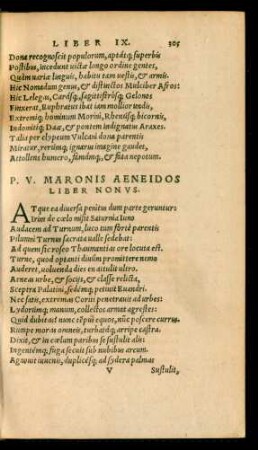 LIBER IX. 305
Dona recognoscit populorum, aptatq; superbis
Postibus, incedunt uictæ longo ordine gentes,
Quàm uariæ linguis, habitu tam uestis, & armis.
Hic Nomadum genus, & distinctos Mulciber Afros:
Hic Lelegas, Carasq́; sagittiferosq́; Gelonos
Finxerat, Euphrates ibat iam mollior undis,
Extremiq́; hominum Morini, Rhenusq́; bicornis,
Indomitiq́; Daæ, & pontem indignatus Araxes.
Talia per clypeum Vulcani dona parentis
Miratur, rerumq́; ignarus imagine gaudet,
Attollens humero, famamq́; & fata nepotum.
P. V. MARONIS AENEIDOS
LIBER NONVS.
ATque ea diuersa penitus dum parte geruntur:
Irim de cœlo misit Saturnia Iuno
Audacem ad Turnum, luco tum fortè parentis
Pilumni Turnus sacrata ualle sedebat:
Ad quem sic roseo Thaumantias ore locuta est.
Turne, quod optanti diuûm promittere nemo
Auderet, uoluenda dies en attulit ultro.
Aeneas urbe, & socijs, & classe relicta,
Sceptra Palatini, sedemq́; petiuit Euandri.
Nec satis, extremas Coriti penetrauit ad urbes:
Lydorúmq; manum, collectos armat agrestes:
Quid dubitas? nunc tẽpus equos, nũc poscere currus.
Rumpe moras omneis, turbataq́; arripe castra.
Dixit, & in cœlum paribus se sustulit alis:
Ingentémq; fuga secuit sub nubibus arcum.
Agnouit iuuenis, duplicésq; ad sydera palmas
V Sustulit,